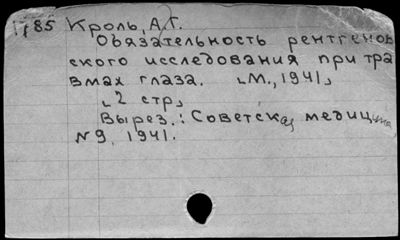 1785 Кроль, А.Г.
Обязательность рентгенов
ского исследования при тра
вмах глаза. [М., 1941]
[2 стр]
Вырез.: Советская медицина
№9, 1941.